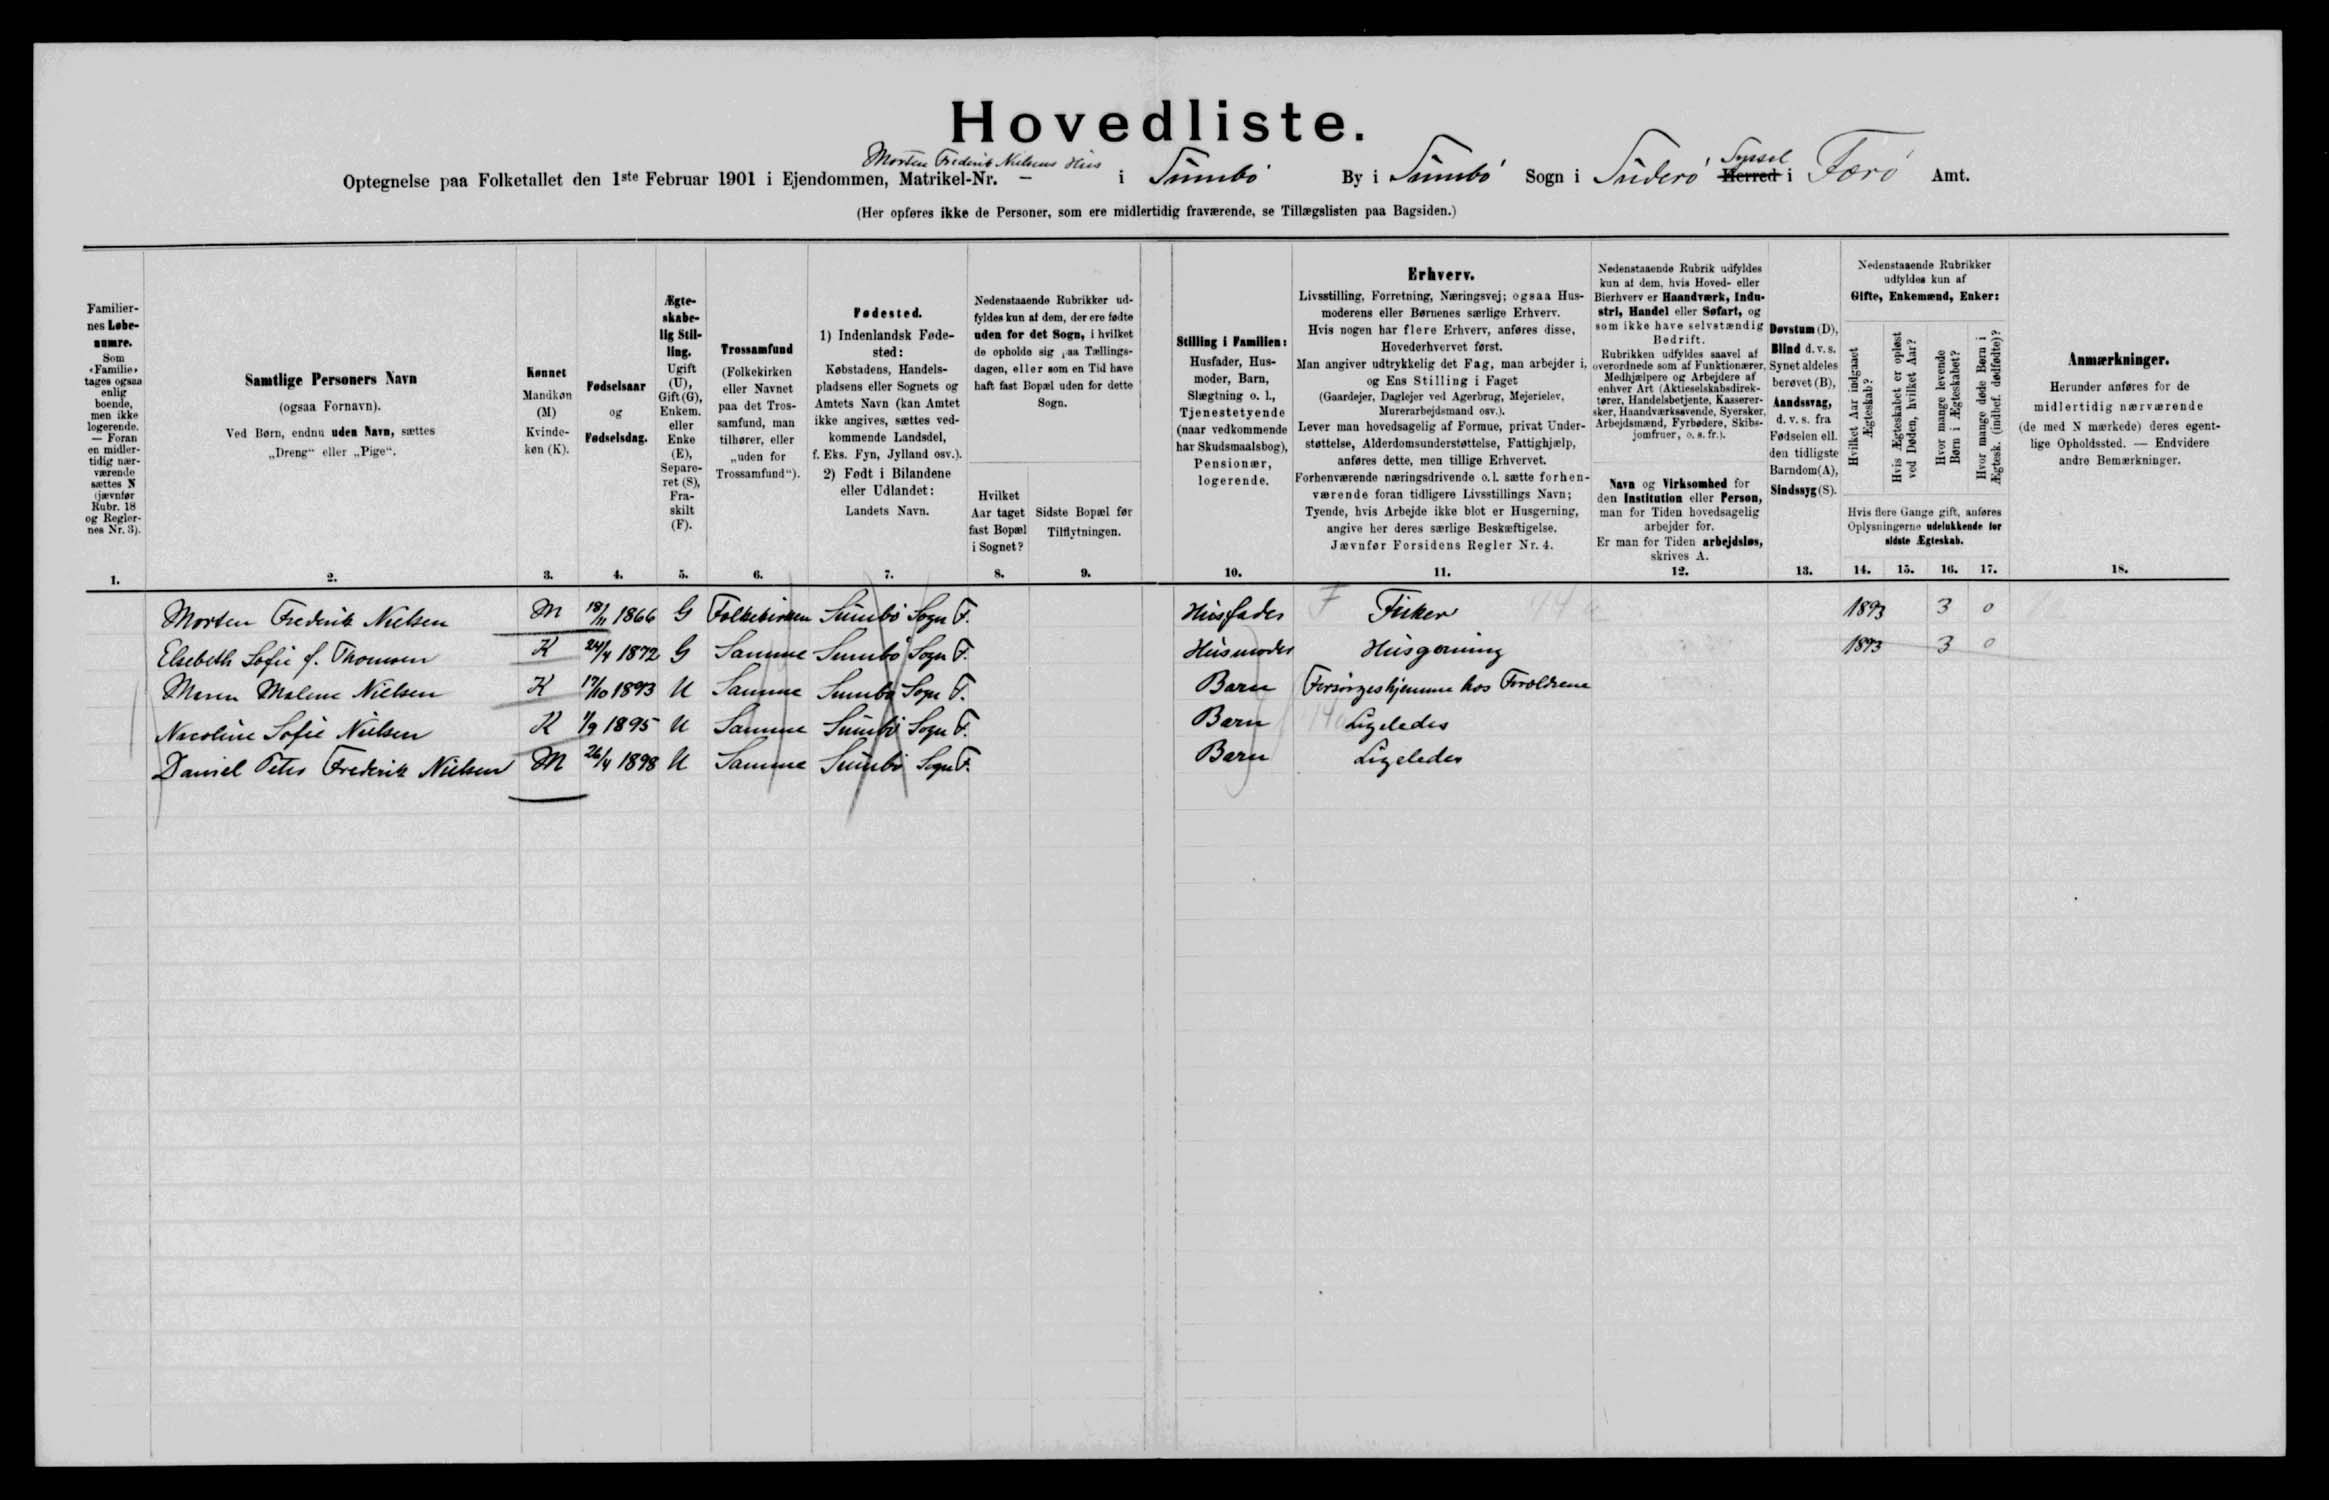 Hovedliste.
Morten Frederik Nielsens Hus
Optegnelse paa Folketallet den 1ste Februar 1901 i Ejendommen, Matrikel-Nr. — i Sumbø By i Sumbø Sogn i Suderø Syssel Herred i Færø Amt.
(Her opføres ikke de Personer, som ere midlertidig fraværende, se Tillægslisten paa Bagsiden.)
Familier-
nes Løbe-
numre.
Som
«Familie»
tages ogsaa
enlig
boende,
men ikke
logerende.
— Foran
en midler-
tidig nær-
værende
sættes N
(jævnfør
Rubr. 18
og Regler-
nes Nr. 3).
1.
Samtlige Personers Navn
(ogsaa Fornavn).
Ved Børn, endnu uden Navn, sættes
„Dreng“ eller „Pige“.
2.
Kønnet
Mandkøn
(M)
Kvinde-
køn (K).
3.
Fødselsaar
og
Fødselsdag.
4.
Ægte-
skabe-
lig Stil-
ling.
Ugift
(U),
Gift (G),
Enkem.
eller
Enke
(E),
Separe-
ret (S),
Fra-
skilt
(F).
5.
Trossamfund
(Folkekirken
eller Navnet
paa det Tros-
samfund, man
tilhører, eller
„uden for
Trossamfund“).
6.
Fødested.
1) Indenlandsk Føde-
sted:
Købstadens, Handels-
pladsens eller Sognets og
Amtets Navn (kan Amtet
ikke angives, sættes ved-
kommende Landsdel,
f. Eks. Fyn, Jylland osv.).
2) Født i Bilandene
eller Udlandet:
Landets Navn.
7.
Nedenstaaende Rubrikker ud-
fyldes kun af dem, der ere fødte
uden for det Sogn, i hvilket
de opholde sig paa Tællings-
dagen, eller som en Tid have
haft fast Bopæl uden for dette
Sogn.
Hvilket
Aar taget
fast Bopæl
i Sognet?
8.
Sidste Bopæl før
Tilflytningen.
9.
Stilling i Familien:
Husfader, Hus-
moder, Barn,
Slægtning o. l.,
Tjenestetyende
(naar vedkommende
har Skudsmaalsbog),
Pensionær,
logerende.
10.
Erhverv.
Livsstilling, Forretning, Næringsvej; ogsaa Hus-
moderens eller Børnenes særlige Erhverv.
Hvis nogen har flere Erhverv, anføres disse,
Hovederhvervet først.
Man angiver udtrykkelig det Fag, man arbejder i,
og Ens Stilling i Faget
(Gaardejer, Daglejer ved Agerbrug, Mejerielev,
Murerarbejdsmand osv.).
Lever man hovedsagelig af Formue, privat Under-
støttelse, Alderdomsunderstøttelse, Fattighjælp,
anføres dette, men tillige Erhvervet.
Forhenværende næringsdrivende o. l. sætte forhen-
værende foran tidligere Livsstillings Navn;
Tyende, hvis Arbejde ikke blot er Husgerning,
angive her deres særlige Beskæftigelse.
Jævnfør Forsidens Regler Nr. 4.
11.
Nedenstaaende Rubrik udfyldes
kun af dem, hvis Hoved- eller
Bierhverv er Haandværk, Indu-
stri, Handel eller Søfart, og
som ikke have selvstændig
Bedrift.
Rubrikken udfyldes saavel af
overordnede som af Funktionærer,
Medhjælpere og Arbejdere af
enhver Art (Aktieselskabsdirek-
tører, Handelsbetjente, Kasserer-
sker, Haandværkssvende, Syersker,
Arbejdsmænd, Fyrbødere, Skibs-
jomfruer, o. s. fr.).
Navn og Virksomhed for
den Institution eller Person,
man for Tiden hovedsagelig
arbejder for.
Er man for Tiden arbejdsløs,
skrives A.
12.
Døvstum (D),
Blind d. v. s.
Synet aldeles
berøvet (B),
Aandssvag,
d. v. s. fra
Fødselen ell.
den tidligste
Barndom (A),
Sindssyg (S).
13.
Nedenstaaende Rubrikker
udfyldes kun af
Gifte, Enkemænd, Enker:
Hvilket Aar indgaaet
Ægteskab?
Hvis Ægteskabet er opløst
ved Døden, hvilket Aar?
Hvor mange levende
Børn i Ægteskabet?
Hvor mange døde Børn i
Ægtesk. (indbef. dødfødte)?
Hvis flere Gange gift, anføres
Oplysningerne udelukkende for
sidste Ægteskab.
14. 15. 16. 17.
Anmærkninger.
Herunder anføres for de
midlertidig nærværende
(de med N mærkede) deres egent-
lige Opholdssted. — Endvidere
andre Bemærkninger.
18.
Morten Frederik Nielsen M 18/11 1866 G Folkekirken Sumbø Sogn F. Husfader F Fisker 1893 3 0
Elsebeth Sofie f. Thomsen K 24/4 1872 G Samme Sumbø Sogn F. Husmoder Husgerning 1893 3 0
Maren Malene Nielsen K 17/10 1893 U Samme Sumbø Sogn F. Barn Forsørges hjemme hos Forældrene
Nicoline Sofie Nielsen K 1/9 1895 U Samme Sumbø Sogn F. Barn Ligeledes
Daniel Peter Frederik Nielsen M 26/4 1898 U Samme Sumbø Sogn F. Barn Ligeledes